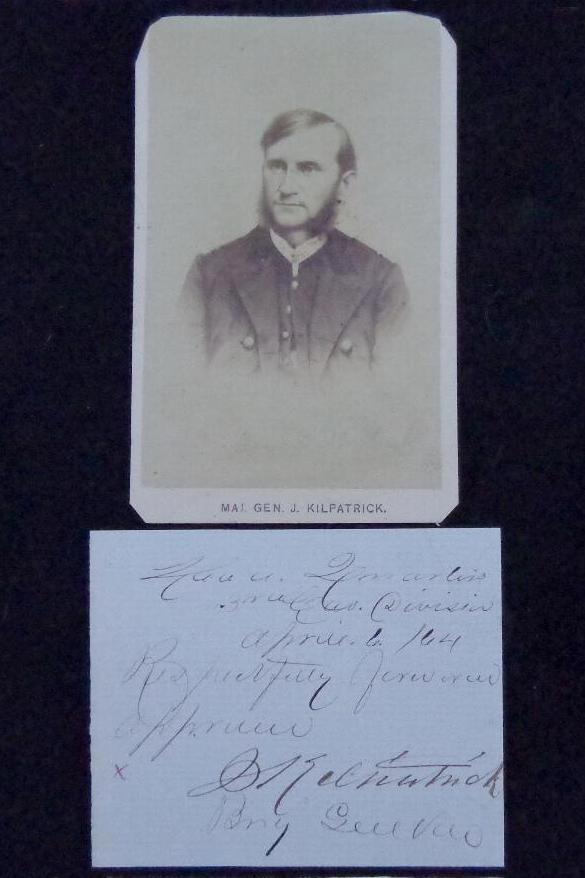 MAJ. GEN. J. KILPATRICK.
Head Quarters
3rd Cav. Division
April 6 /64
Respectfully forward
approved
x
J Kilpatrick
Brig Genl Vols